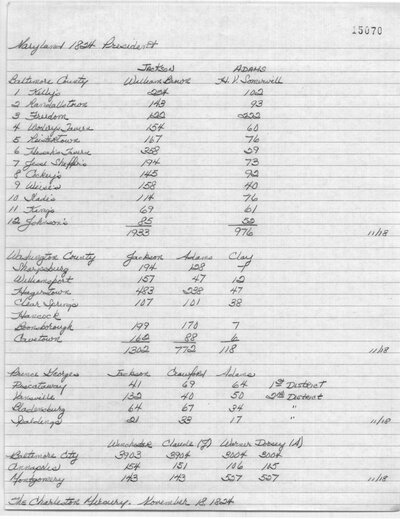 15070
Maryland 1824 President
JACKSON ADAMS
Baltimore County William Brown H. V. Somervell
1 Kelly's 254 102
2 Randallstown 143 93
3 Freedom 222
4 Modery's Tavern 154 60
5 Reisterstown 167 76
6 Tavern 358 59
7 Jesse Shaffer's 194 73
8 Cockey's 145 92
9 Weise's 158 40
10 Slade's 114 76
11 King's 69 61
12 Johnson's 85 52
1933 976 11/18
Washington County Jackson Adams Clay
Sharpsburg 194 128 7
Williamsport 157 47 12
Hagerstown 483 238 47
Clear Springs 107 101 38
Hancock
Boonsborough 199 170 7
Cavetown 162 88 6
1302 772 118 11/18
Prince Georges Jackson Crawford Adams
Piscataway 41 69 64 1st District
Vansville 132 40 50 2nd District
Bladensburg 64 67 34 "
Spaldings 21 33 17 " 11/18
Winchester Claude (J) Warner Dorsey (A)
Baltimore City 3903 3904 3004 3004
Annapolis 154 151 106 105
Montgomery 143 143 527 527 11/18
The Charleston Mercury. November 18, 1824